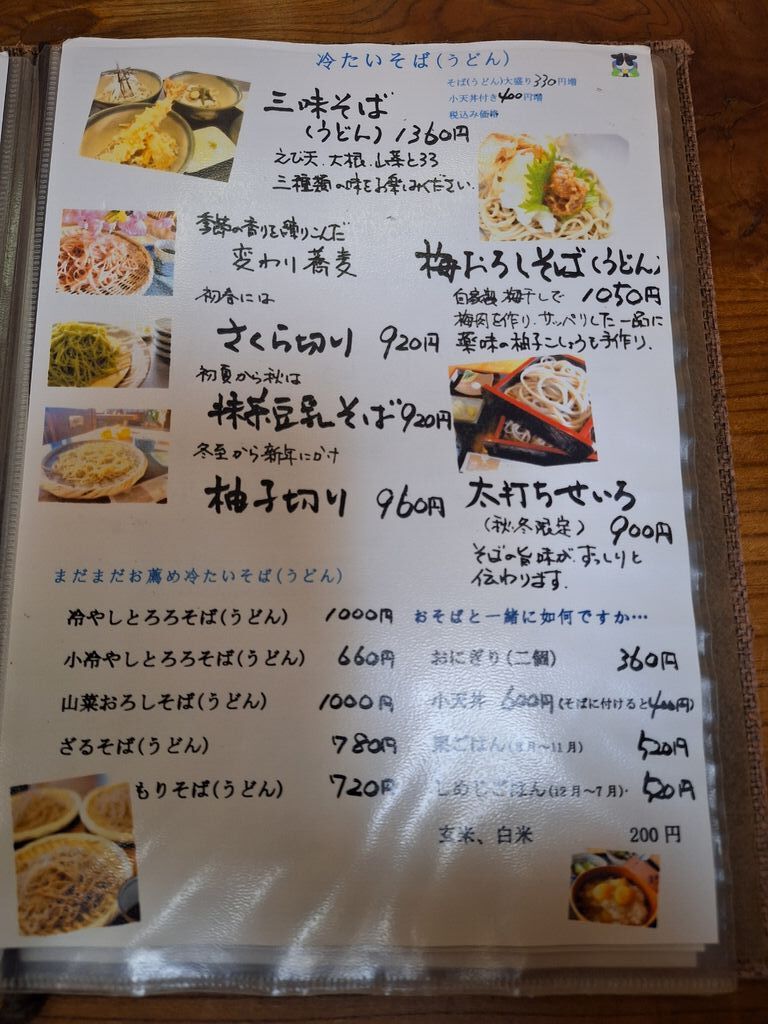 冷たいそば(うどん)
そば(うどん)大盛り330円増
小天丼付き400円増
税込み価格
三味そば
(うどん) 1360円
えび天、大根、山菜とろろ
三種類の味をお楽しみください。
季節の香りを練りこんだ
変わり蕎麦
初春には
さくら切り 920円
初夏から秋は
抹茶豆乳そば 920円
冬至から新年にかけ
柚子切り 960円
梅おろしそば(うどん)
自家製梅干しで 1050円
梅肉を作り、サッパリした一品に
薬味の柚子こしょうも手作り。
太打ちせいろ
(秋・冬限定) 900円
そばの旨味が、ずっしりと
伝わります。
まだまだお薦め冷たいそば(うどん)
冷やしとろろそば(うどん) 1000円
小冷やしとろろそば(うどん) 660円
山菜おろしそば(うどん) 1000円
ざるそば(うどん) 780円
もりそば(うどん) 720円
おそばと一緒に如何ですか…
おにぎり(二個) 360円
小天丼 600円(そばに付けると400円)
栗ごはん(8月～11月) 520円
しめじごはん(12月～7月)・ 520円
玄米、白米 200円